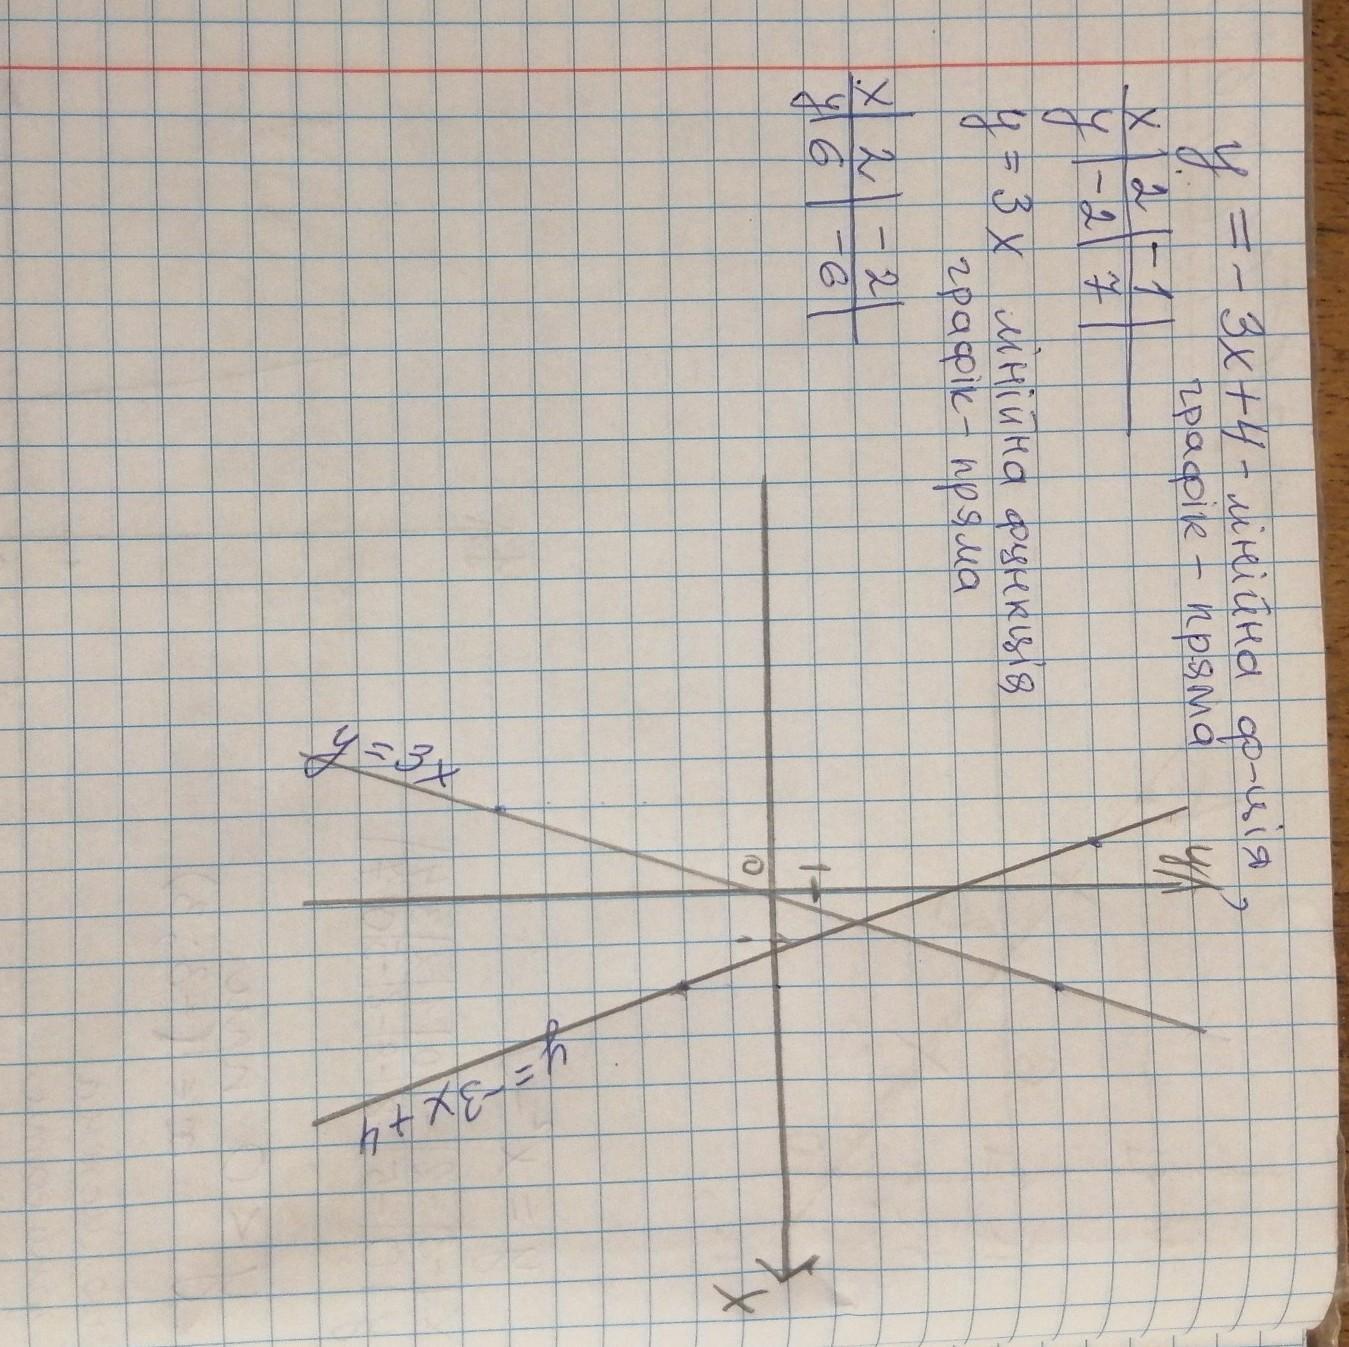 y = - 3x + 4 - лінійна ф-ція,
графік - пряма
x | 2 | - 1 |
y | - 2 | 7 |
y = 3x лінійна функція
графік - пряма
x | 2 | - 2 |
y | 6 | - 6 |
y
1
0
1
x
y = 3x
y = -3x + 4